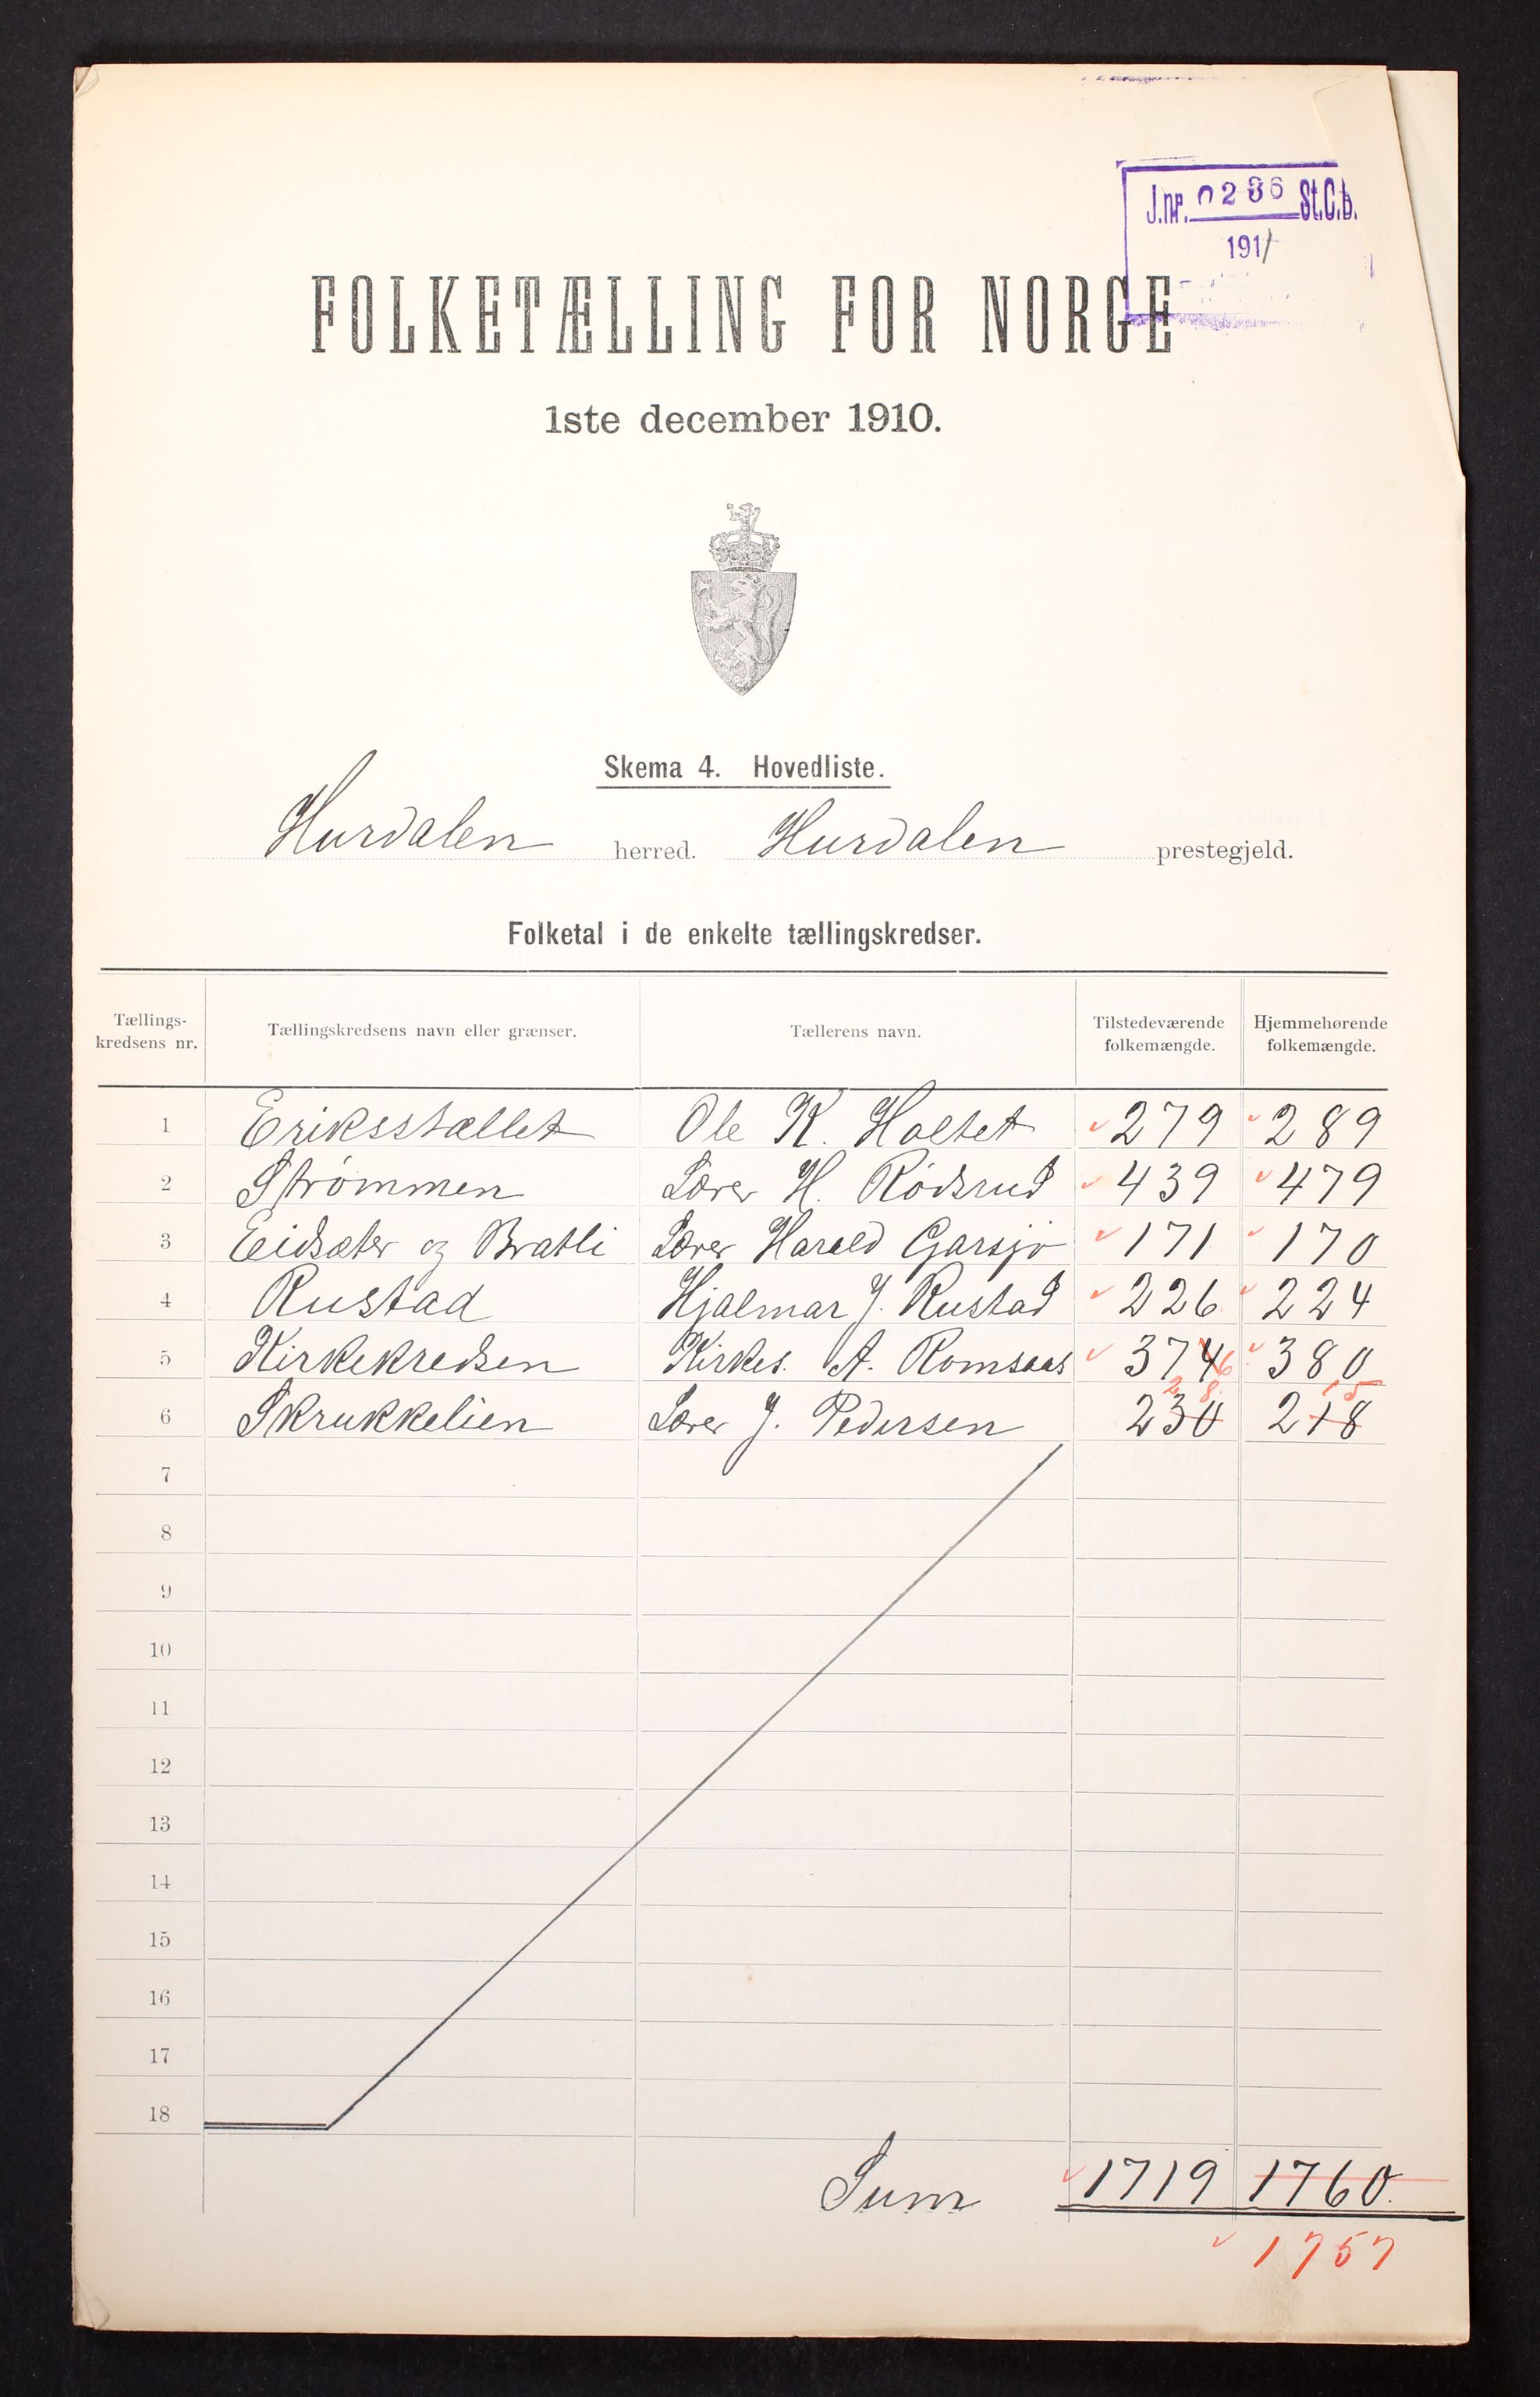 J.nr. 0286 St.C.b.
1911
FOLKETÆLLING FOR NORGE
1ste december 1910.
Skema 4. Hovedliste.
Hurdalen herred. Hurdalen prestegjeld.
Folketal i de enkelte tællingskredser.
Tællings-kredsens nr. Tællingskredsens navn eller grænser. Tællerens navn. Tilstedeværende folkemængde. Hjemmehørende folkemængde.
1 Eriksstallet Ole K. Holtet 279 289
2 Strømmen Lærer H. Rödsrud 439 479
3 Eidsæter og Bratli Lærer Harald Garsjø 171 170
4 Rustad Hjalmar J. Rustad 226 224
5 Kirkekredsen Kirkes. A. Romsaas 374 6 380
2 8. 15
6 Skrukkelien Lærer J. Pedersen 230 218
7
8
9
10
11
12
13
14
15
16
17
18
Sum 1719 1760.
1757